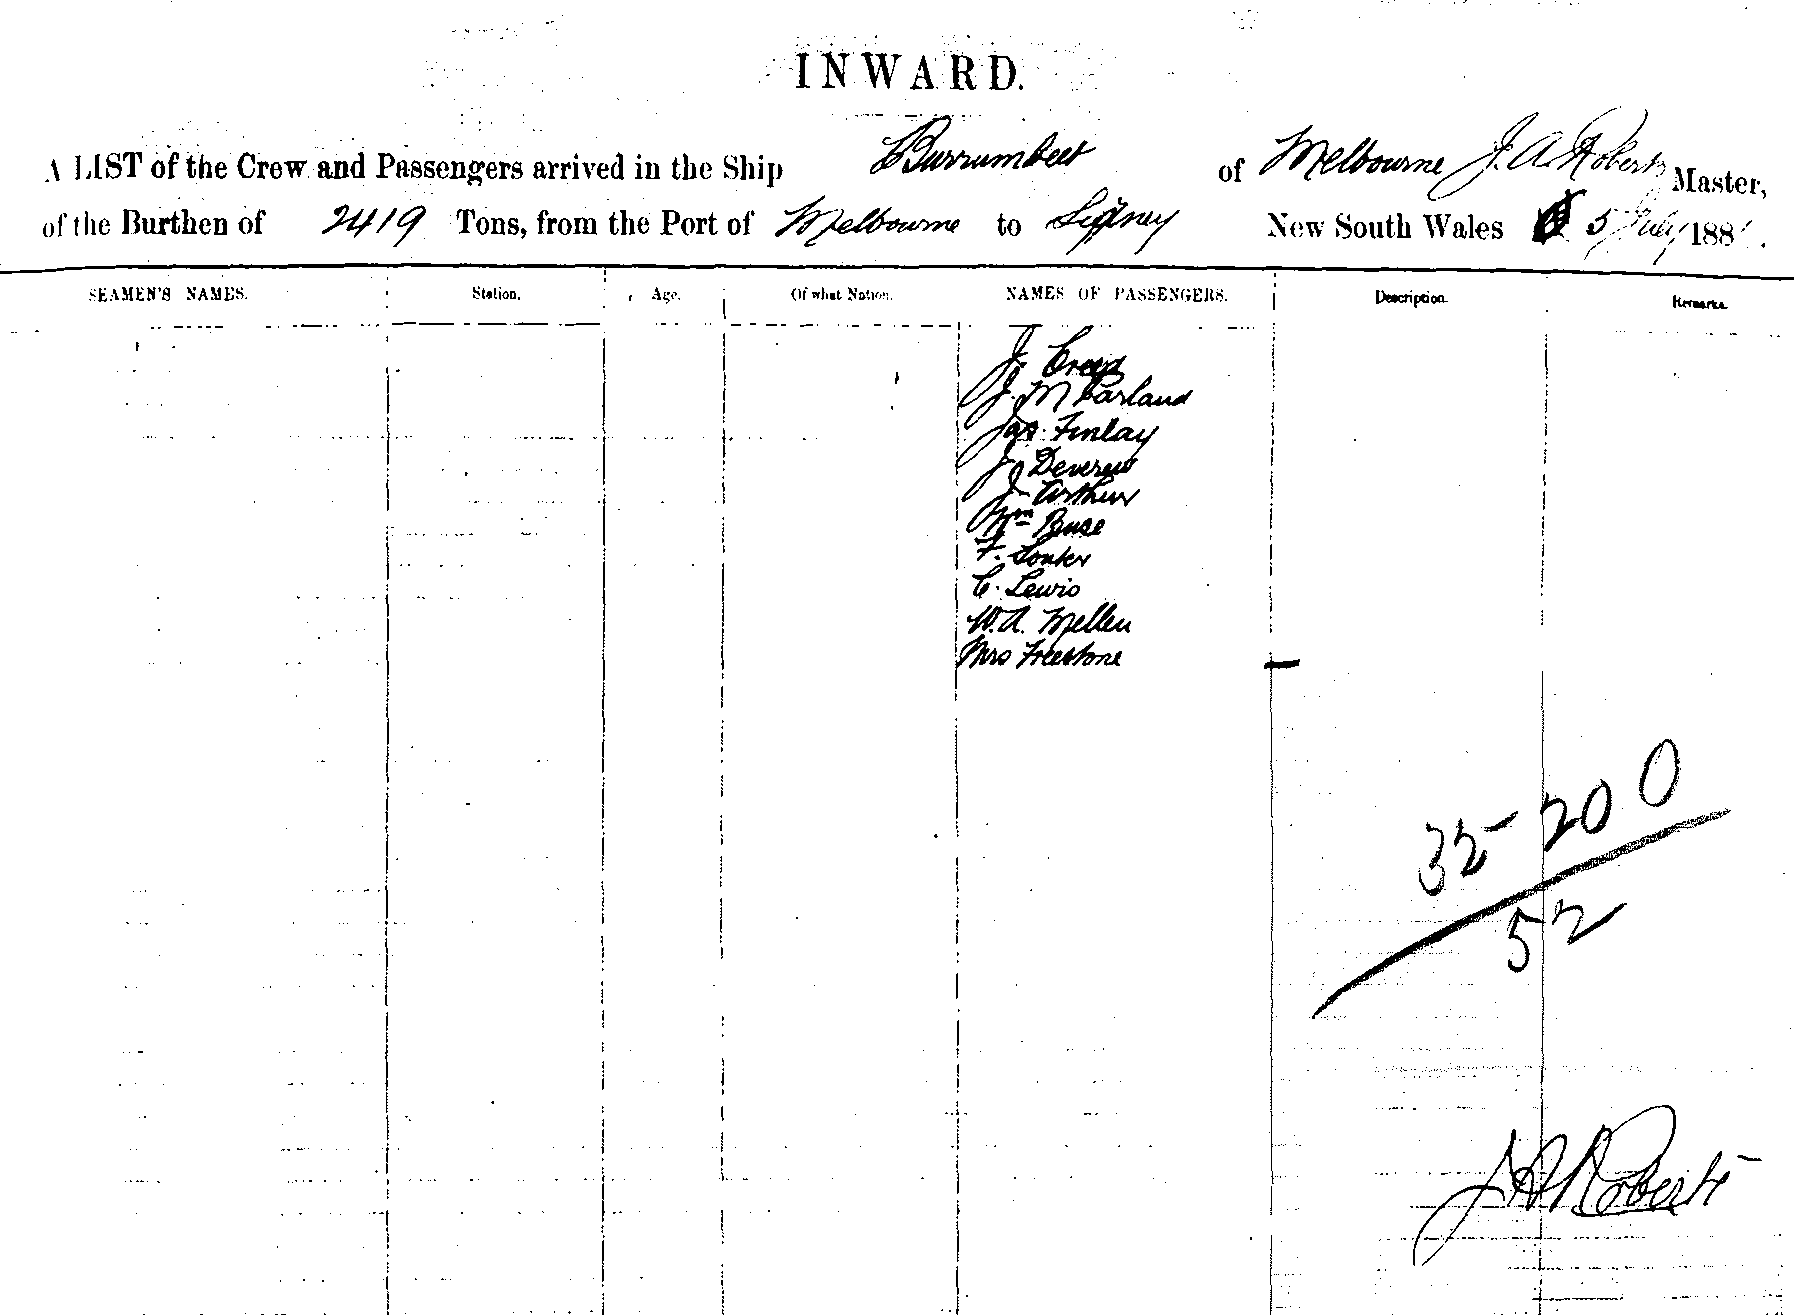 INWARD.
A LIST of the Crew and Passengers arrived in the Ship Burrumbeet of Melbourne J. A. Roberts Master,
of the Burthen of 2419 Tons, from the Port of Melbourne to Sydney New South Wales 5 July 188
SEAMEN'S NAMES. Station. Age. Of what Nation. NAMES OF PASSENGERS. Description. Remarks.
J.
J. McParland
Jas. Finlay
J. Devereu
J. Arthur
Wm Buse
F.
C. Lewis
W. A. Mellen
Mrs Freestone
32 20 0
52
J A Roberts